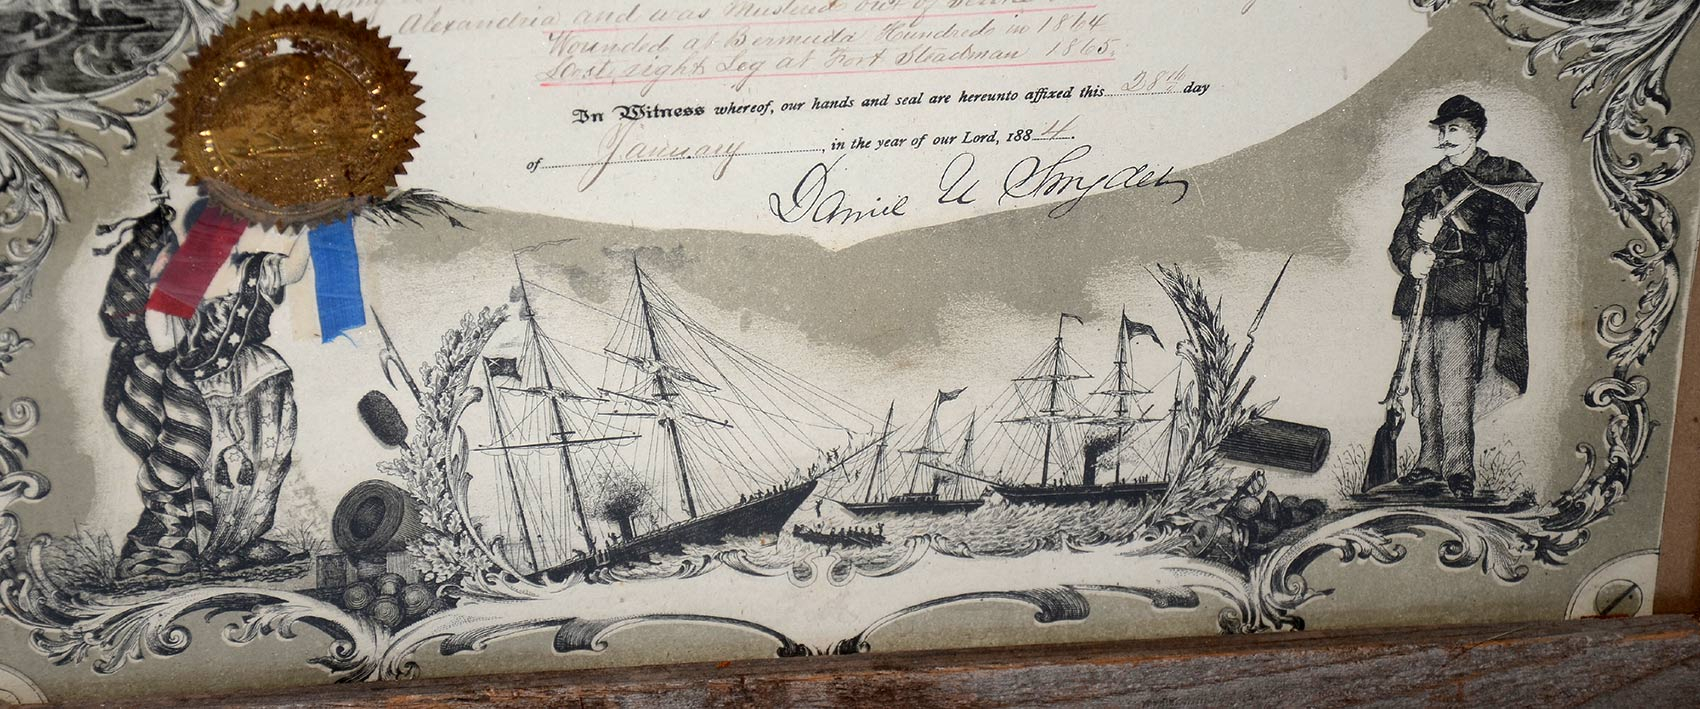 Alexandria and was Musterd out of
Wounded at Bermuda Hundreds in 1864
Lost right Leg at Fort Steadman 1865.
In Witness whereof, our hands and seal are hereunto affixed this 28th day
of January, in the year of our Lord, 1884.
Daniel U Snyder